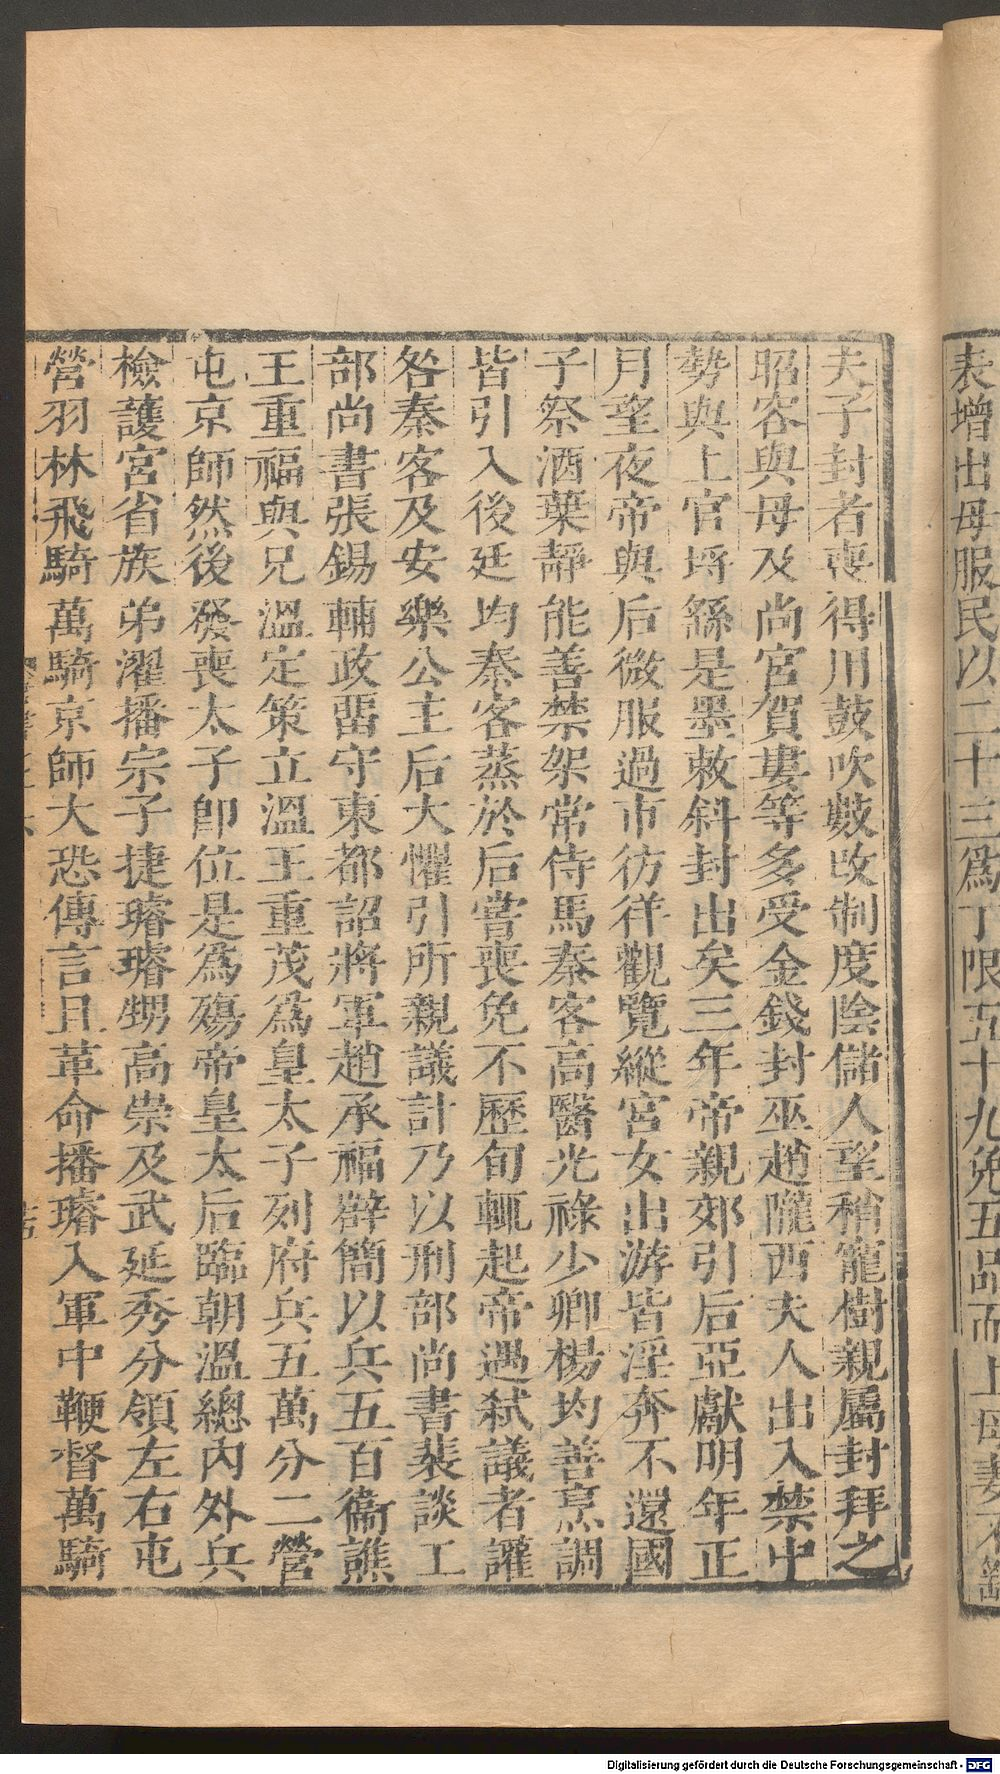 表增出母服民以二十三爲丁限五十九免五品而上母妻不
夫子封者喪得用鼓吹數改制度陰儲人望稍寵樹親屬封拜之
昭容與母及尚宮賀婁等多受金錢封巫趙隴西夫人出入禁中
勢與上官埒繇是墨敕斜封出矣三年帝親郊引后亞獻明年正
月望夜帝與后微服過市彷徉觀覽縱宮女出游皆淫奔不還國
子祭酒葉靜能善禁架常侍馬秦客高醫光祿少卿楊均善烹調
皆引入後廷均秦客蒸於后嘗喪免不歷旬輒起帝遇弑議者讙
咎秦客及安樂公主后大懼引所親議計乃以刑部尚書裴談工
部尚書張錫輔政畱守東都詔將軍趙承福薛簡以兵五百衞譙
王重福與兄溫定策立溫王重茂爲皇太子列府兵五萬分二營
屯京師然後發喪太子卽位是爲殤帝皇太后臨朝溫總內外兵
檢護宮省族弟濯播宗子捷璿璿甥高崇及武延秀分領左右屯
營羽林飛騎萬騎京師大恐傳言且革命播璿入軍中鞭督萬騎
Digitalisierung gefördert durch die Deutsche Forschungsgemeinschaft - DFG